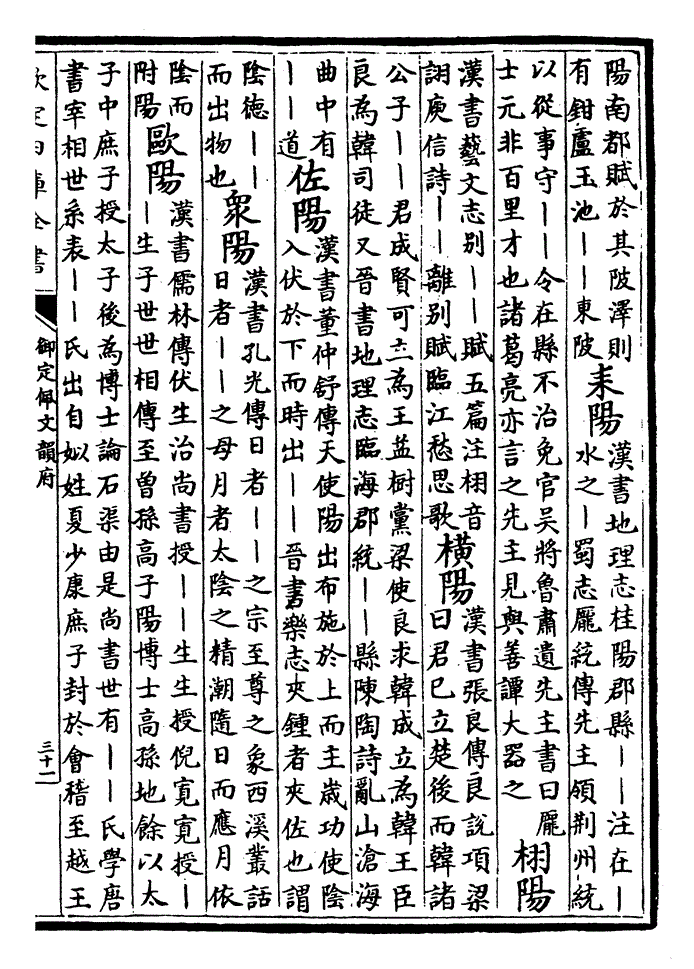 陽南都賦於其陂澤則
有鉗盧玉池丨丨東陂
耒陽
漢書地理志桂陽郡縣丨丨注在丨
水之丨蜀志龐統傳先主領荆州統
以從事守丨丨令在縣不治免官吴將魯肅遺先主書曰龐
士元非百里才也諸葛亮亦言之先主見與善譚大器之
栩陽
漢書藝文志别丨丨賦五篇注栩音
詡庾信詩丨丨離别賦臨江愁思歌
横陽
漢書張良傳良説項梁
曰君已立楚後而韓諸
公子丨丨君成賢可立為王益樹黨梁使良求韓成立為韓王臣
良為韓司徒又晉書地理志臨海郡統丨丨縣陳陶詩亂山滄海
曲中有
丨丨道
佐陽
漢書董仲舒傳天使陽出布施於上而主嵗功使陰
入伏於下而時出丨丨晉書樂志夾鍾者夾佐也謂
陰徳丨丨
而出物也
衆陽
漢書孔光傳日者丨丨之宗至尊之象西溪叢話
日者丨丨之母月者太陰之精潮隨日而應月依
陰而
附陽
歐陽
漢書儒林傳伏生治尚書授丨丨生生授倪寛寛授丨
丨生子世世相傳至曾孫高子陽博士高孫地餘以太
子中庶子授太子後為博士論石渠由是尚書世有丨丨氏學唐
書宰相世系表丨丨氏出自姒姓夏少康庶子封於會稽至越王
欽定四庫全書
御定佩文韻府
三十一